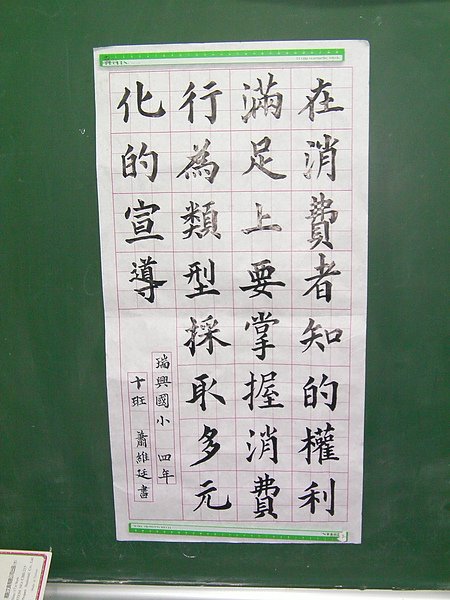 在消費者知的權利
滿足上要掌握消費
行為類型採取多元
化的宣導
瑞興國小 四年
十班 蕭維廷書